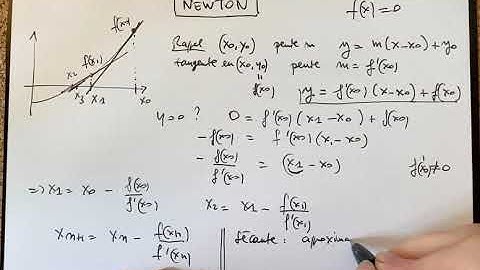 NEWTON
f(x)=0
f(x0)
f(x1)
x2
x3 x1 x0
Rapel (x0,y0) pente m y = m(x-x0)+y0
tangente en (x0,y0) pente m = f'(x0)
f(x0)
y = f'(x0) (x-x0) + f(x0)
y=0 ? 0 = f'(x0) (x1-x0) + f(x0)
-f(x0) = f'(x0) (x1-x0)
- f(x0)/f'(x0) = (x1-x0)
f'(x0)≠0
=> x1 = x0 - f(x0)/f'(x0)
x2 = x1 - f(x1)/f'(x1)
xn+1 = xn - f(xn)/f'(xn)
Sécante : aproxima